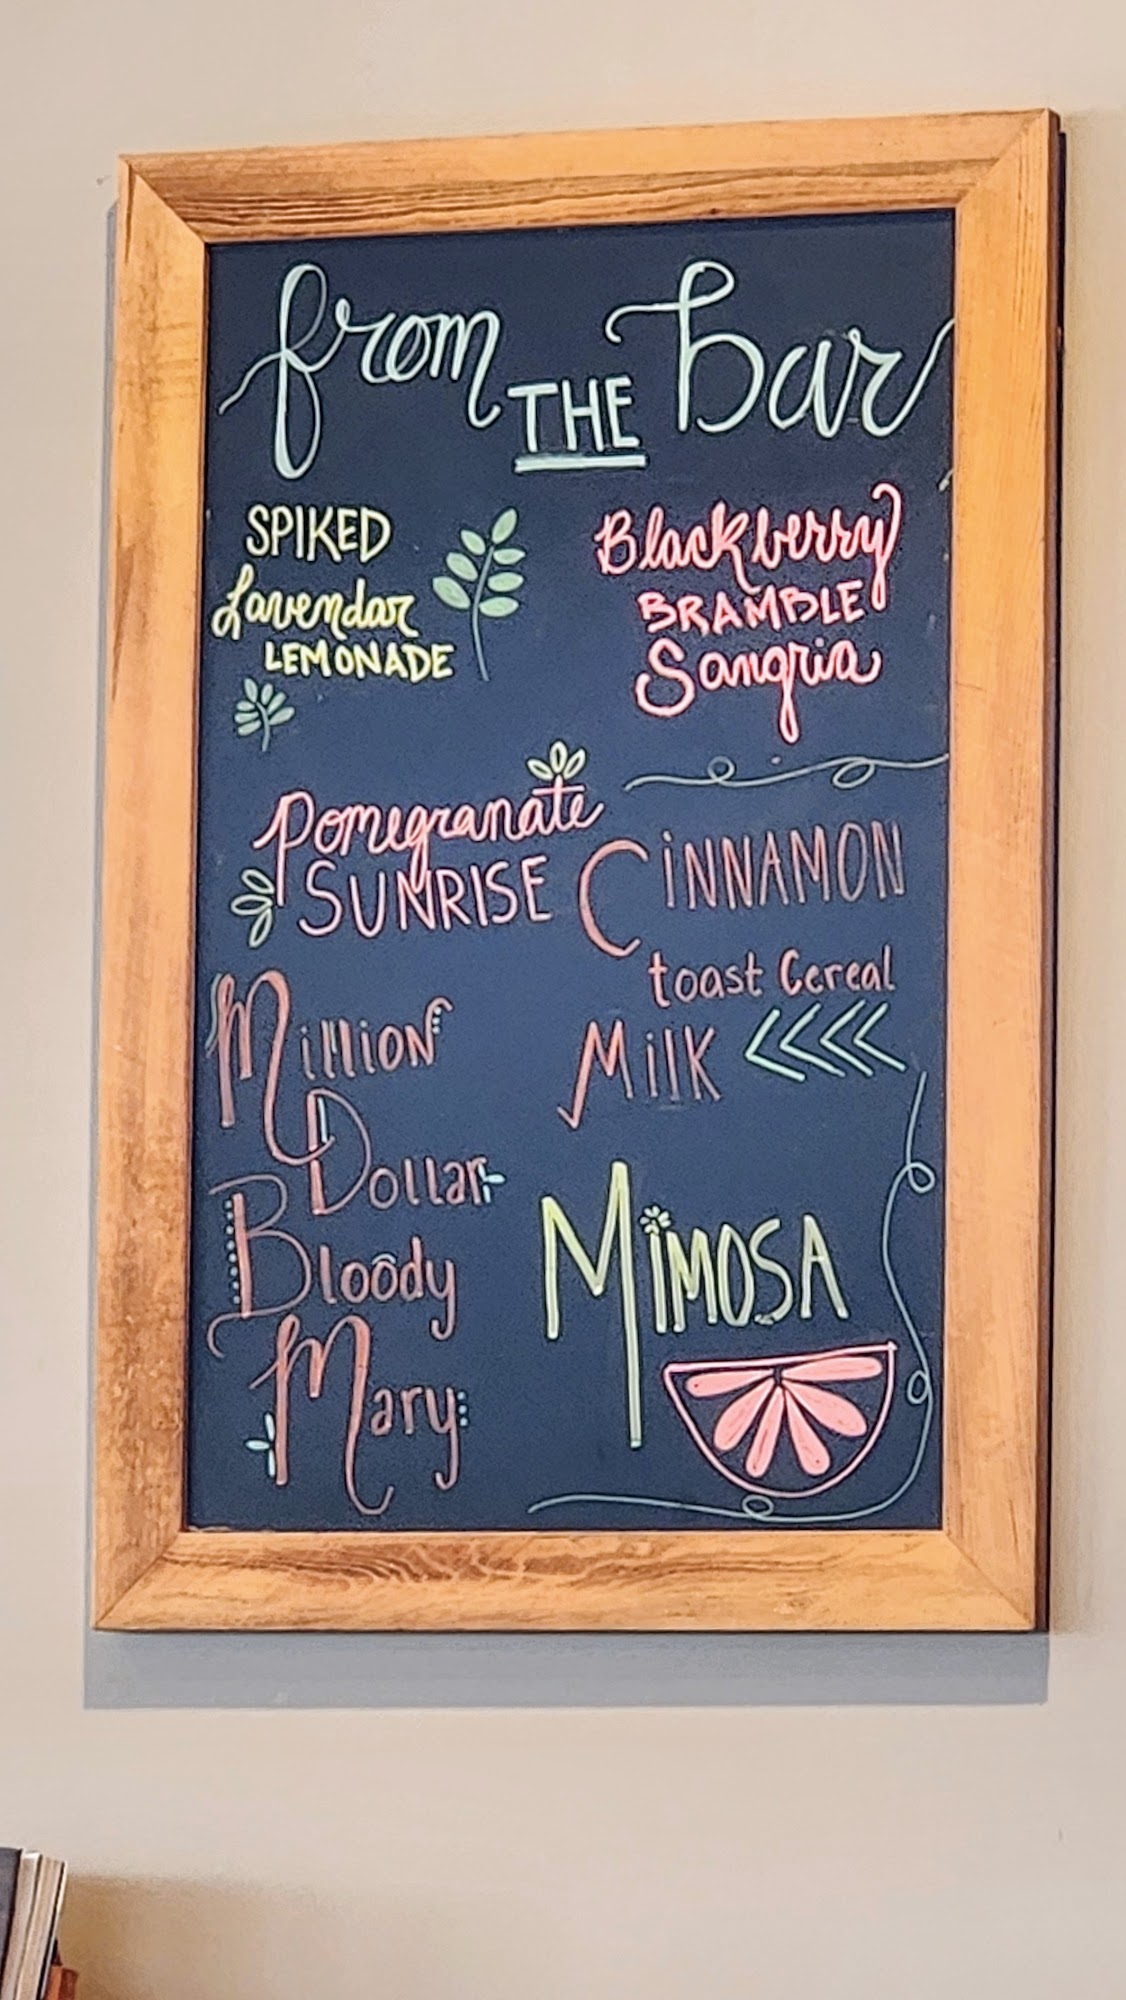 from THE bar
SPIKED
Lavendar
LEMONADE
Blackberry
BRAMBLE
Sangria
Pomegranate
SUNRISE
CiNNAMON
toast Cereal
Milk
Million
Dollar
Bloody
Mary
MiMOSA